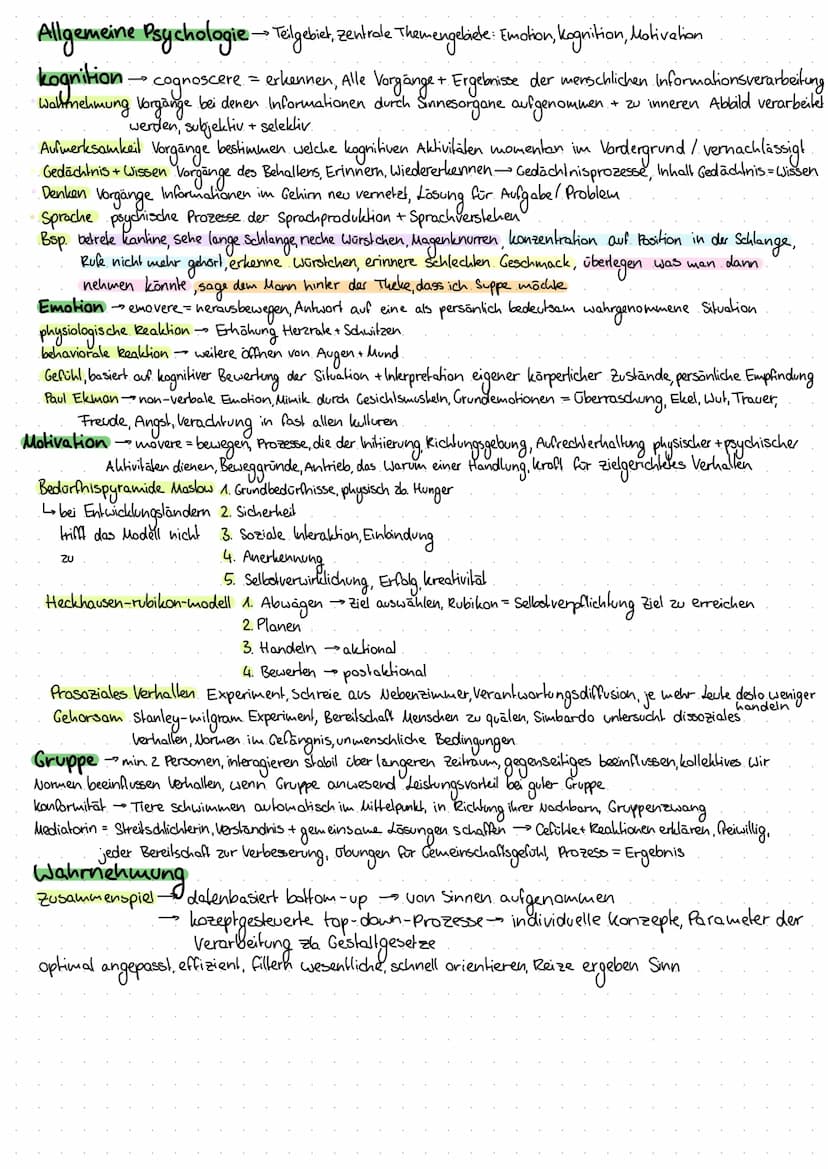 Allgemeine Psychologie → Teilgebiet, zentrale Themengebiete: Emotion, Kognition, Motivation
Kognition → cognoscere = erkennen, Alle Vorgänge + Ergebnisse der menschlichen Informationsverarbeitung
Wahrnehmung Vorgänge bei denen Informationen durch Sinnesorgane aufgenommen + zu inneren Abbild verarbeitet
werden, subjektiv + selektiv
Aufmerksamkeit Vorgänge bestimmen welche kognitiven Aktivitäten momentan im Vordergrund / vernachlässigt
Gedächtnis + Wissen Vorgänge des Behaltens, Erinnern, Wiedererkennen → Gedächtnisprozesse, Inhalt Gedächtnis = Wissen
Denken Vorgänge Informationen im Gehirn neu vernetzt, Lösung für Aufgabe / Problem
Sprache psychische Prozesse der Sprachproduktion + Sprachverstehen
Bsp. betrete Kantine, sehe lange Schlange, rieche Würstchen, Magenknurren, Konzentration auf Position in der Schlange,
Rufe nicht mehr gehört, erkenne Würstchen, erinnere schlechten Geschmack, überlegen was man dann
nehmen könnte, sage dem Mann hinter der Theke, dass ich Suppe möchte
Emotion → emovere = herausbewegen, Antwort auf eine als persönlich bedeutsam wahrgenommene Situation
physiologische Reaktion → Erhöhung Herzrate + Schwitzen
behaviorale Reaktion → weitere öffnen von Augen + Mund
Gefühl, basiert auf kognitiver Bewertung der Situation + Interpretation eigener körperlicher Zustände, persönliche Empfindung
Paul Ekman → non-verbale Emotion, Mimik durch Gesichtsmuskeln, Grundemotionen = Überraschung, Ekel, Wut, Trauer,
Freude, Angst, Verachtung in fast allen kulturen
Motivation → movere = bewegen, Prozesse, die der Initiierung, Richtungsgebung, Aufrechterhaltung physischer + psychischer
Aktivitäten dienen, Beweggründe, Antrieb, das Warum einer Handlung, kraft für zielgerichtetes Verhalten
Bedürfnispyramide Maslow 1. Grundbedürfnisse, physisch zb Hunger
↳ bei Entwicklungsländern 2. Sicherheit
trifft das Modell nicht 3. Soziale Interaktion, Einbindung
zu 4. Anerkennung
5. Selbstverwirklichung, Erfolg, kreativität
Heckhausen-rubikon-modell 1. Abwägen → Ziel auswählen, Rubikon = Selbstverpflichtung Ziel zu erreichen
2. Planen
3. Handeln → aktional
4. Bewerten → postaktional
Prosoziales Verhalten Experiment, Schreie aus Nebenzimmer, Verantwortungsdiffusion, je mehr Leute desto weniger
handeln
Gehorsam Stanley-milgram Experiment, Bereitschaft Menschen zu quälen, Simbardo untersucht dissoziales
Verhalten, Normen im Gefängnis, unmenschliche Bedingungen
Gruppe → min. 2 Personen, interagieren stabil über längeren Zeitraum, gegenseitiges beeinflussen, kollektives Wir
Normen beeinflussen Verhalten, wenn Gruppe anwesend Leistungsvorteil bei guter Gruppe
Konformität → Tiere schwimmen automatisch im Mittelpunkt, in Richtung ihrer Nachbarn, Gruppenzwang
Mediatorin = Streitschlichterin, Verständnis + gemeinsame Lösungen schaffen → Gefühle + Reaktionen erklären, freiwillig,
jeder Bereitschaft zur Verbesserung, Übungen für Gemeinschaftsgefühl, Prozess = Ergebnis
Wahrnehmung
Zusammenspiel → datenbasiert bottom-up → von Sinnen aufgenommen
→ kozeptgesteuerte top-down-Prozesse → individuelle Konzepte, Parameter der
Verarbeitung zb Gestaltgesetze
optimal angepasst, effizient, filtern wesentliche, schnell orientieren, Reize ergeben Sinn